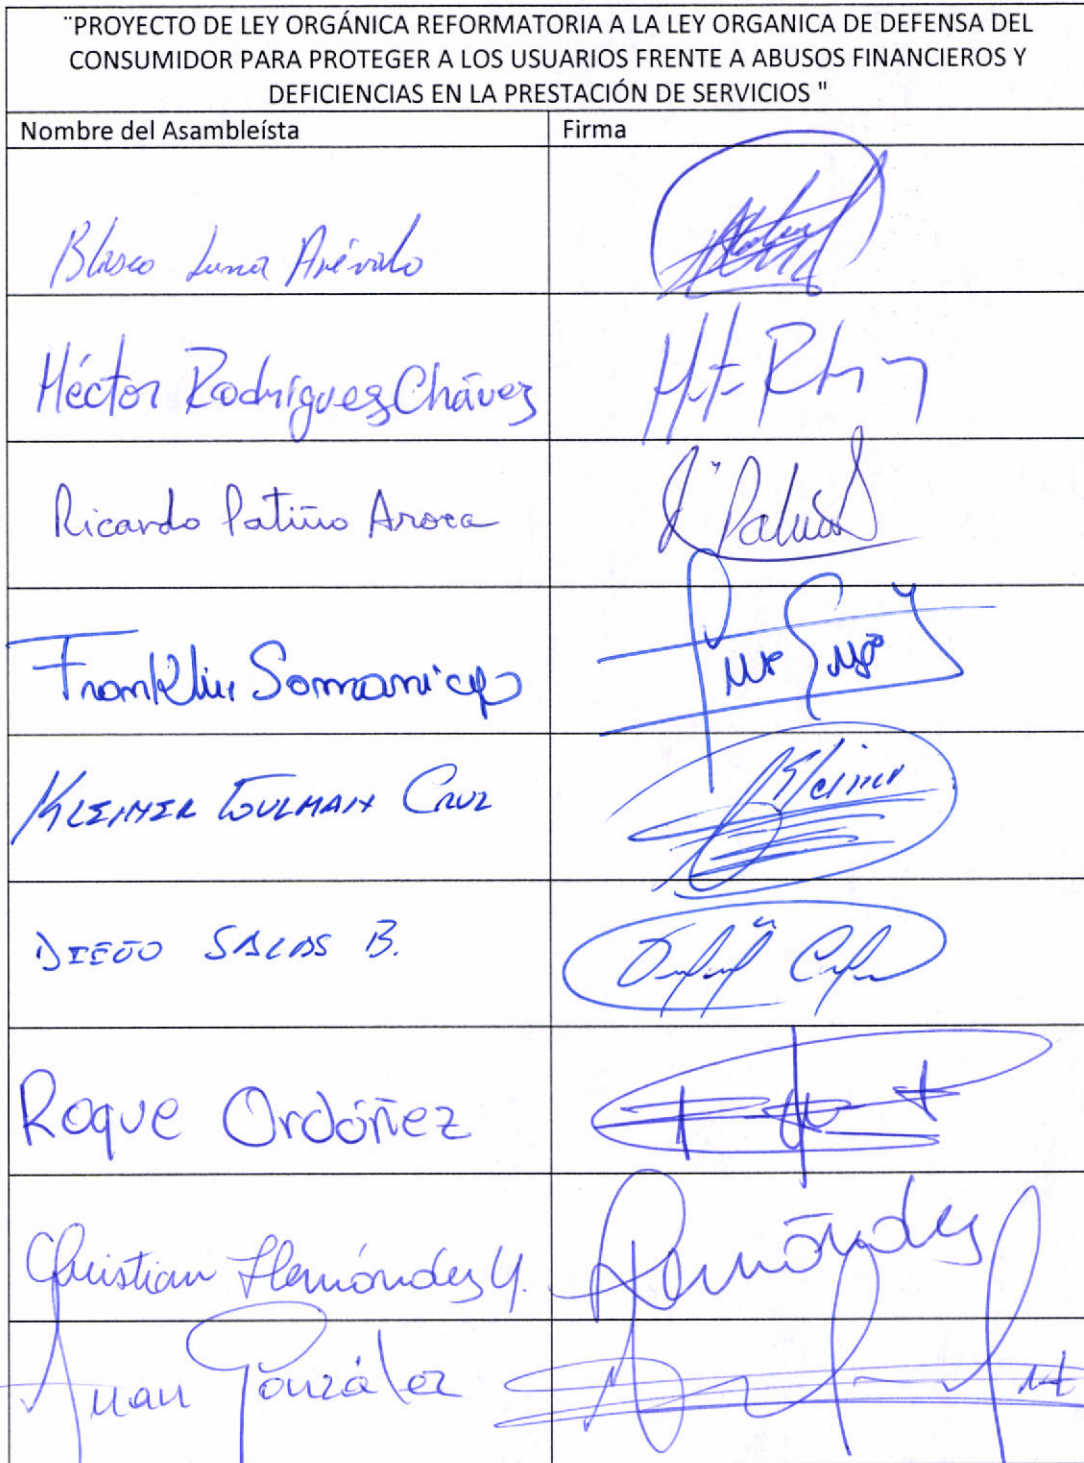 ¨PROYECTO DE LEY ORGÁNICA REFORMATORIA A LA LEY ORGANICA DE DEFENSA DEL
CONSUMIDOR PARA PROTEGER A LOS USUARIOS FRENTE A ABUSOS FINANCIEROS Y
DEFICIENCIAS EN LA PRESTACIÓN DE SERVICIOS "
Nombre del Asambleísta Firma
Blasco Luna Arévalo
Héctor Rodríguez Chávez
Ricardo Patiño Aroca
Franklin Samaniego
KLEINER Cruz
DIEGO SALAS B.
Roque Ordóñez
Christian Hernández Y. Hernández
Juan González